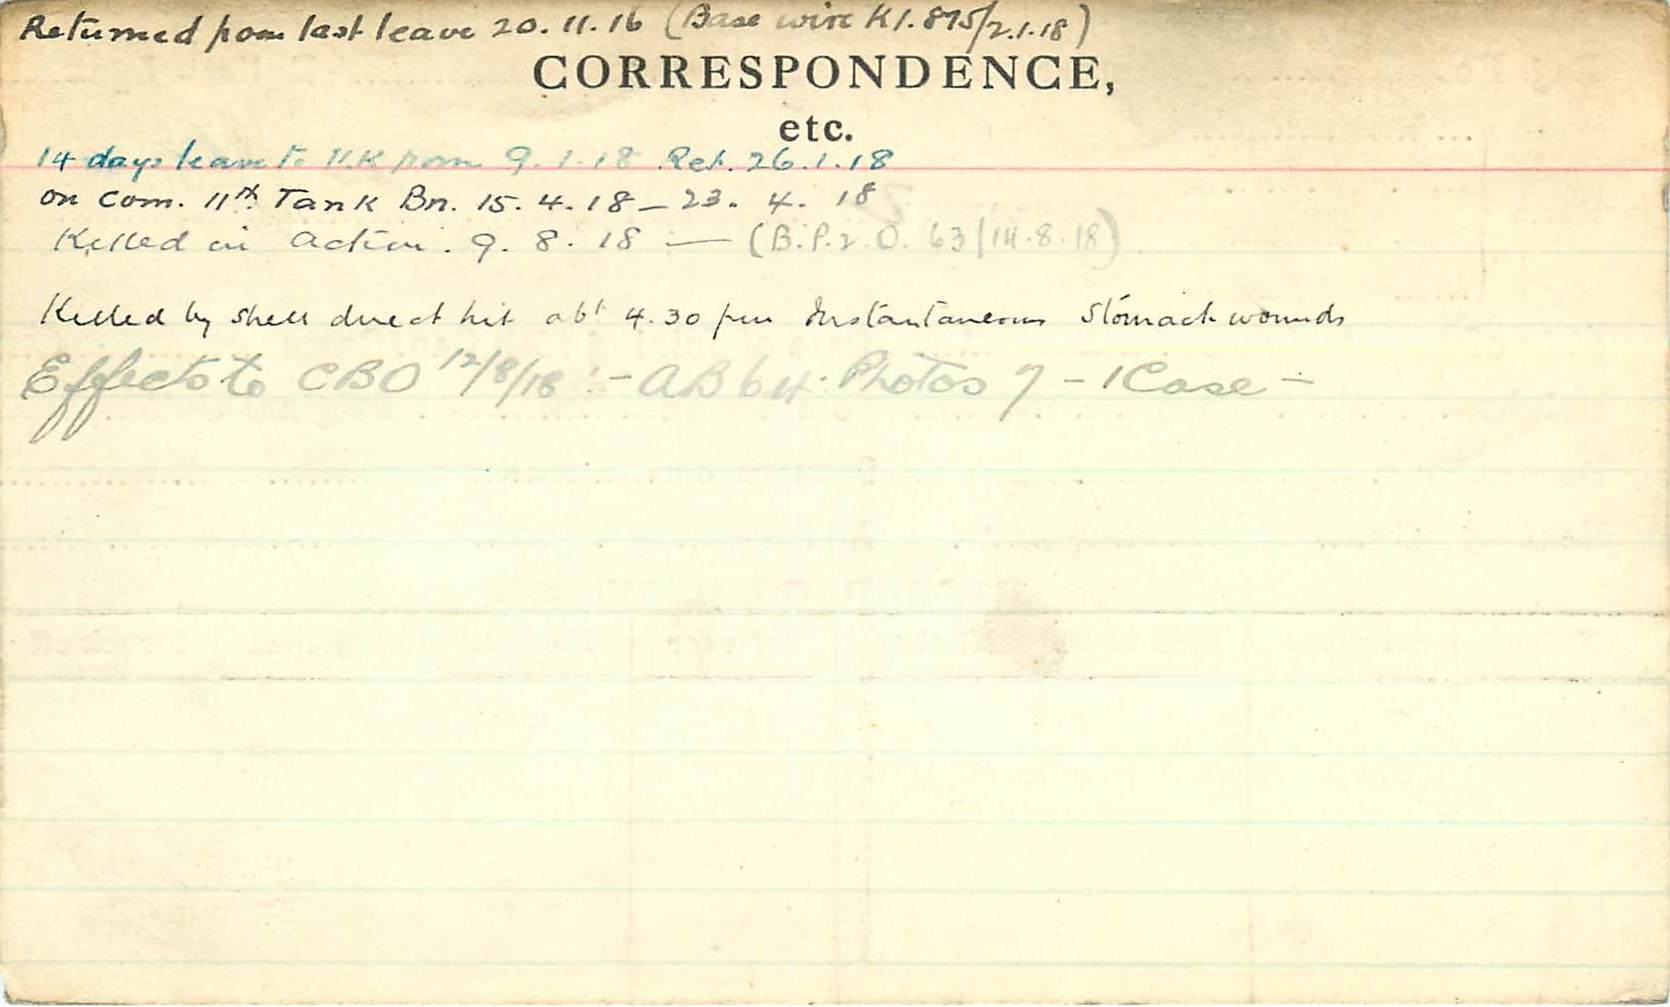 Returned from last leave 20.11.16 (Base wire K1.875/2.1.18)
CORRESPONDENCE,
etc.
14 days leave to U.K from 9.1.18 Ret. 26.1.18
on Com. 11th Tank Bn. 15.4.18 - 23.4.18
Killed in action. 9.8.18 — (B.P.2.O. 63/14.8.18)
Killed by shell direct hit abt 4.30 pm Instantaneous Stomach wounds
Effects to CBO 12/8/18 :- AB 64: Photos 7 - 1 Case -